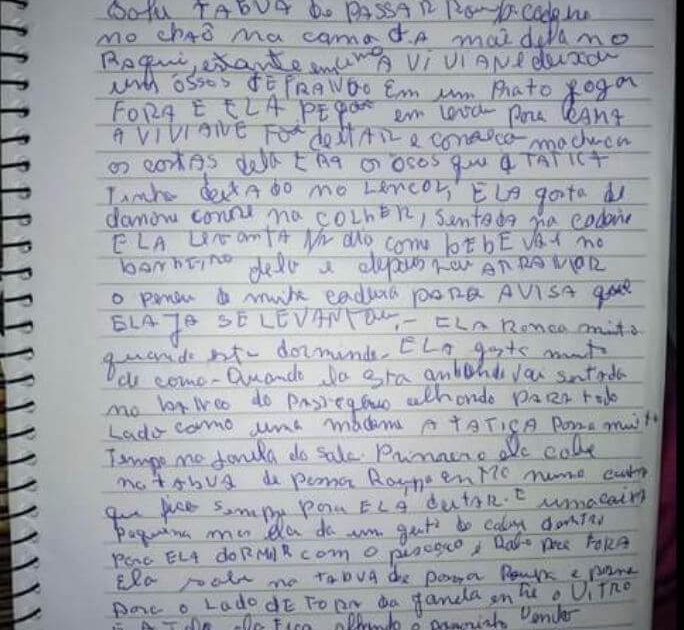 Sofa TABUA de PASSAR Roupa cadeira
no chão na cama dA mãe dela no
Raqui, estante em uma A ViVIANE deixou
um óssos dE FRANGO Em um Prato jogar
FORA E ELA PEGou em levou para CAMA
A VIVIAINE Foi deitAR e começa machuca
os costas dela ERA os osos que A TATICA
Tinha deitado no Lencol, ELA gosta de
danone come na COLHER, Sentada na cadeira
ELA LevantA como bEbE VAi no
banheiro dela e depois vai ARRANHAR
o peneu de minha cadeira PARA AVISA que
ELA JA SE LEVANTOU, - ELA Ronca muito
quando esta dorminde - ELA gosta muito
de come - Quando ela Esta andando vai sentada
no banco do passageiro olhando PARA todo
Lado como uma madame A TATICA Passa muito
Tempo na janela da sala. Primeiro ela sobe
na tAbUA de passar Roupa numa caixa
que fica sempre para ELA deitAR. E uma caixa
pequena mas ela da um geito de caber dentro
para ELA doRMIR com o pescoço e Rabo pra FORA
Ela sobe na TAbUA de passar Roupa e passa
para o LAdo dE FORA da janela entre o ViTRO
ela fica olhando o